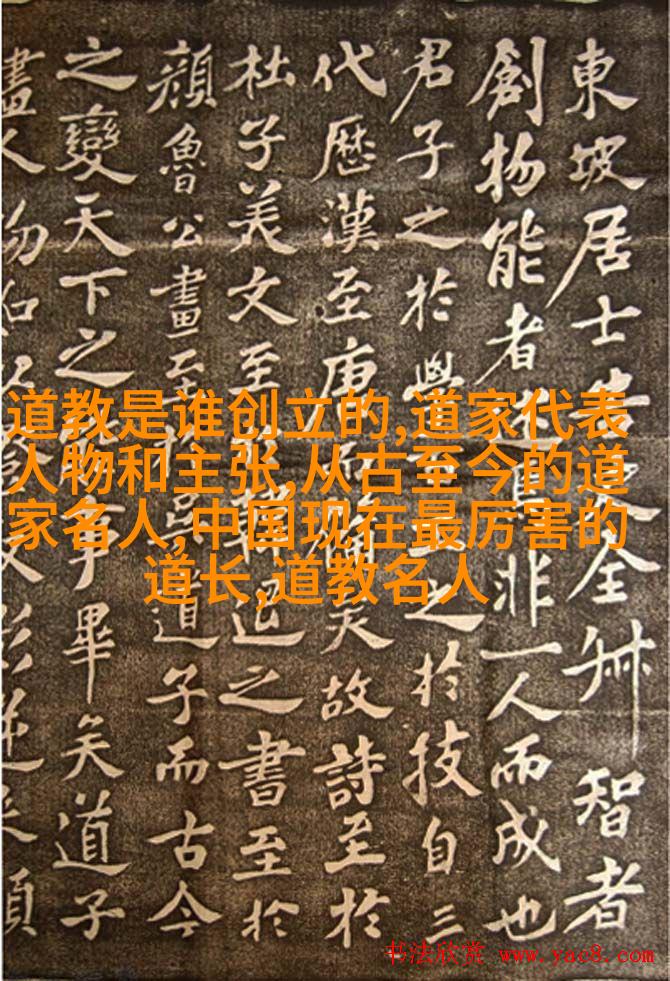 東坡居士全智者
創物能者述焉非一人而成也
君子之於學百工之於技自三
代歷漢至唐而備矣故詩至於
杜子美文至韓退之書至於
顏魯公畫至吳道子而古今
之變天下之能事畢矣道子
畫人物如以燈取影逆來順
道教是谁创立的,道家代表
人物和主张,从古至今的道
家名人,中国现在最厉害的
道长,道教名人
书法欣赏 www.yac8.com